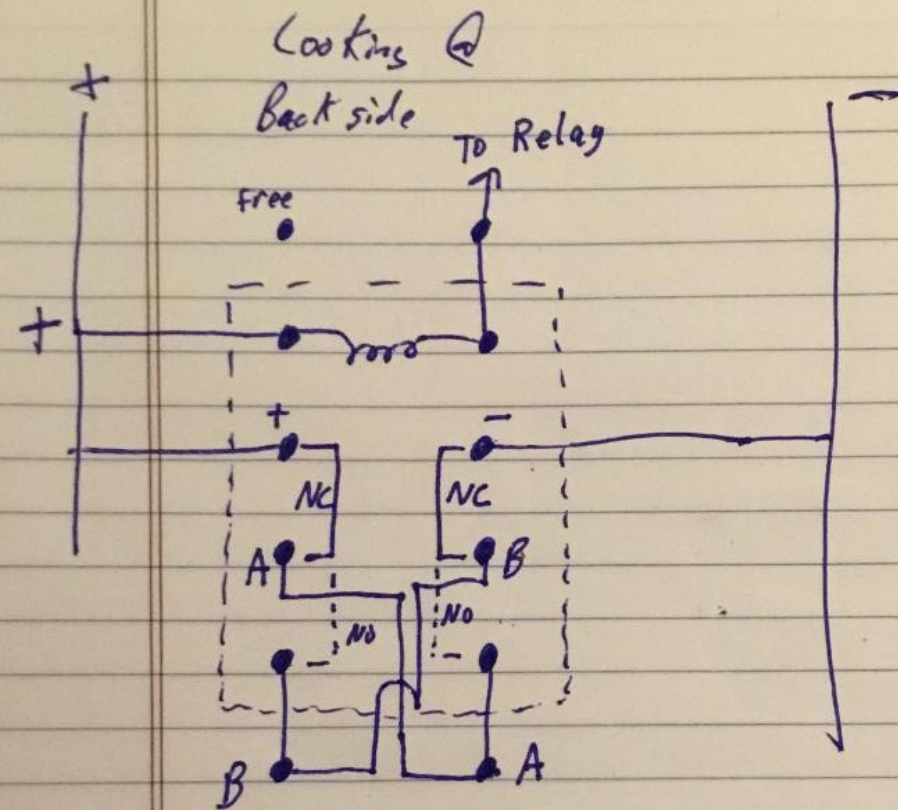 Looking @
+ -
Back side
To Relay
Free
+
+ -
NC NC
A B
NO NO
B A